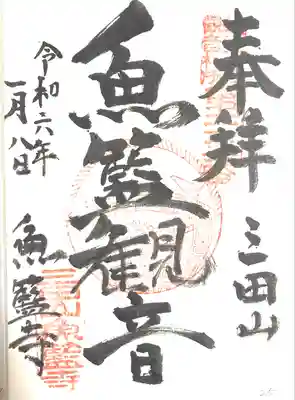 奉拝
三田山
魚籃観音
令和六年
一月八日
魚籃寺